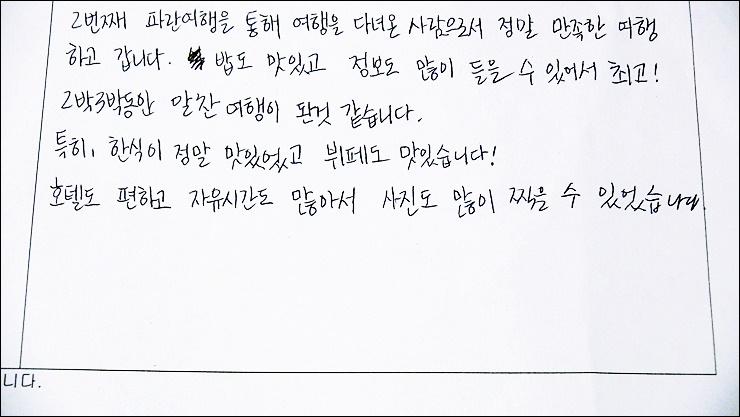 2번째 파란여행을 통해 여행을 다녀온 사람으로서 정말 만족한 여행
하고 갑니다. 밥도 맛있고 정보도 많이 들을 수 있어서 최고!
2박3박동안 알찬 여행이 된것 같습니다.
특히, 한식이 정말 맛있었고 뷔페도 맛있습니다!
호텔도 편하고 자유시간도 많아서 사진도 많이 찍을 수 있었습니다.
니다.